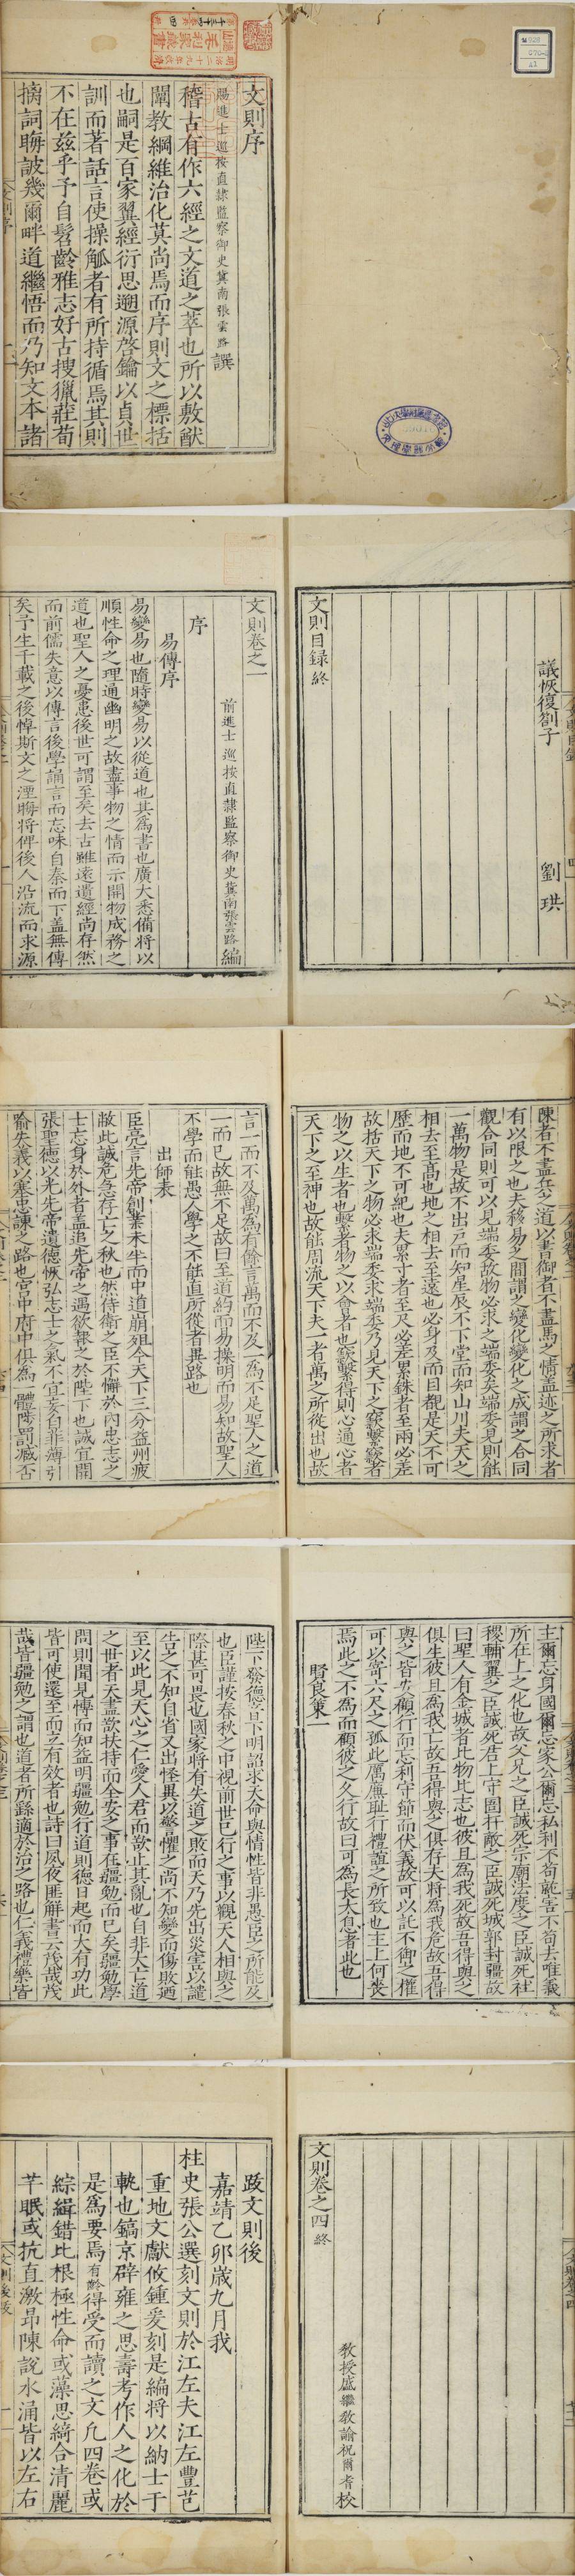 文則序
賜進士巡按直隸監察御史冀南張雲路譔
稽古有作六經之文道之萃也所以敷猷
闡教綱維治化莫尚焉而序則文之標括
也嗣是百家翼經衍思遡源啓鑰以貞世
訓而著話言使操觚者有所持循焉其則
不在兹乎予自髫齡雅志好古搜獵莊荀
摛詞晦詖幾爾畔道繼悟而乃知文本諸
議恢復劄子 劉珙
文則目録終
文則卷之一
前進士巡按直隸監察御史冀南張雲路編
序
易傳序
易變易也隨時變易以從道也其爲書也廣大悉備將以
順性命之理通幽明之故盡事物之情而示開物成務之
道也聖人之憂患後世可謂至矣去古雖遠遺經尚存然
而前儒失意以傳言後學誦言而忘味自秦而下盖無傳
矣予生千載之後悼斯文之湮晦將俾後人沿流而求源
陳者不盡兵之道以書御者不盡馬之情盖迹之所求者
有以限之也夫移易之間謂之變化變化之成謂之合同
觀合同則可以見端委故物必求之端委矣端委見則能
一萬物是故不出戸而知星辰不下堂而知山川夫天之
相去至髙也地之相去至遠也必身及而目覩是天不可
歷而地不可紀也夫累寸者至尺必差累銖者至兩必差
故括天下之物必求端委求端委乃見天下之竅繫竅者
物之以生者也繫者物之以會者也竅繫得則心通心者
天下之至神也故能周流天下夫一者萬之所從出也故
言一而不及萬為有餘言萬而不及一為不足聖人之道
一而已故無不足故曰至道約而易操明而易知故聖人
不學而能愚人學之不能直所從者異路也
出師表
臣亮言先帝創業未半而中道崩殂今天下三分益州疲
敝此誠危急存亡之秋也然侍衛之臣不懈於内忠志之
士忘身於外者盖追先帝之遇欲報之於陛下也誠宜開
張聖徳以光先帝遺徳恢弘志士之氣不宜妄自菲薄引
喻失義以塞忠諫之路也宫中府中俱為一體陟罰臧否
主爾忘身國爾忘家公爾忘私利不苟就害不苟去唯義
所在上之化也故父兄之臣誠死宗廟法度之臣誠死社
稷輔翼之臣誠死君上守圄扞敵之臣誠死城郭封疆故
曰聖人有金城者比物比志也彼且為我死故吾得與之
俱生彼且為我亡故吾得與之俱存夫將為我危故吾得
與之皆安顧行而忘利守節而伏義故可以託不御之權
可以寄六尺之孤此厲廉耻行禮誼之所致也主上何喪
焉此之不為而顧彼之久行故曰可為長太息者此也
賢良策一
陛下發德音下明詔求天命與情性皆非愚臣之所能及
也臣謹按春秋之中視前世已行之事以觀天人相與之
際甚可畏也國家將有失道之敗而天乃先出災害以譴
告之不知自省又出怪異以警懼之尚不知變而傷敗迺
至以此見天心之仁愛人君而欲止其亂也自非大亡道
之世者天盡欲扶持而全安之事在彊勉而已矣彊勉學
問則聞見愽而知益明彊勉行道則德日起而大有功此
皆可使還至而立有效者也詩曰夙夜匪解書云茂哉茂
哉皆彊勉之謂也道者所繇適於治之路也仁義禮樂皆
文則卷之四終
教授盛繼教諭祝爾耆校
跋文則後
嘉靖乙卯歲九月我
柱史張公選刻文則於江左夫江左豐芑
重地文獻攸鍾爰刻是編将以納士于
軌也鎬京辟雍之思壽考作人之化於
是爲要焉有齡得受而讀之文凡四卷或
綜緝錯比根極性命或藻思綺合清麗
芊眠或抗直激昻陳說水涌皆以左右